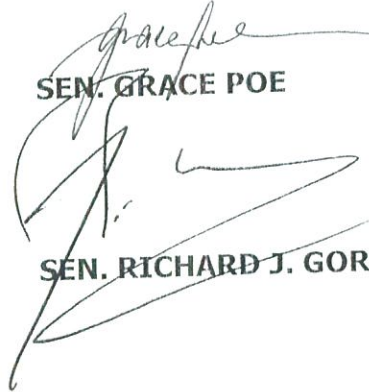 grace poe
SEN. GRACE POE
SEN. RICHARD J. GOR